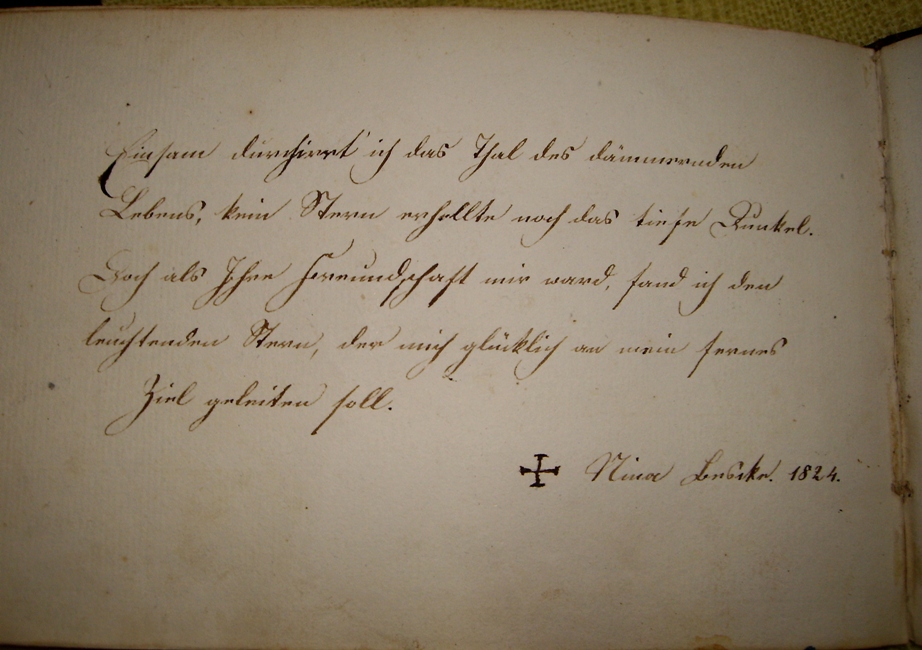 Einsam durchirrt' ich das Thal des dämmernden
Lebens, kein Stern erhellte noch das tiefe Dunkel.
Doch als Ihre Freundschaft mir ward, fand ich den
leuchtenden Stern, der mich glücklich an mein fernes
Ziel geleiten soll.
Nina 1824.